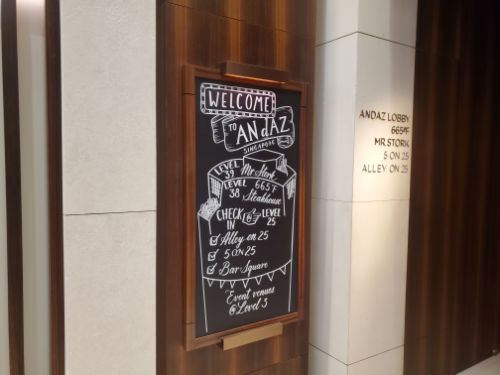 WELCOME
TO ANdAZ
SINGAPORE
LEVEL 39 Mr Stork
LEVEL 38 665°F Steakhouse
CHECK IN @ LEVEL 25
Alley on 25
5 ON 25
Bar Square
Event venues
@Level 3
ANDAZ LOBBY
665°F
MR. STORK
5 ON 25
ALLEY ON 25